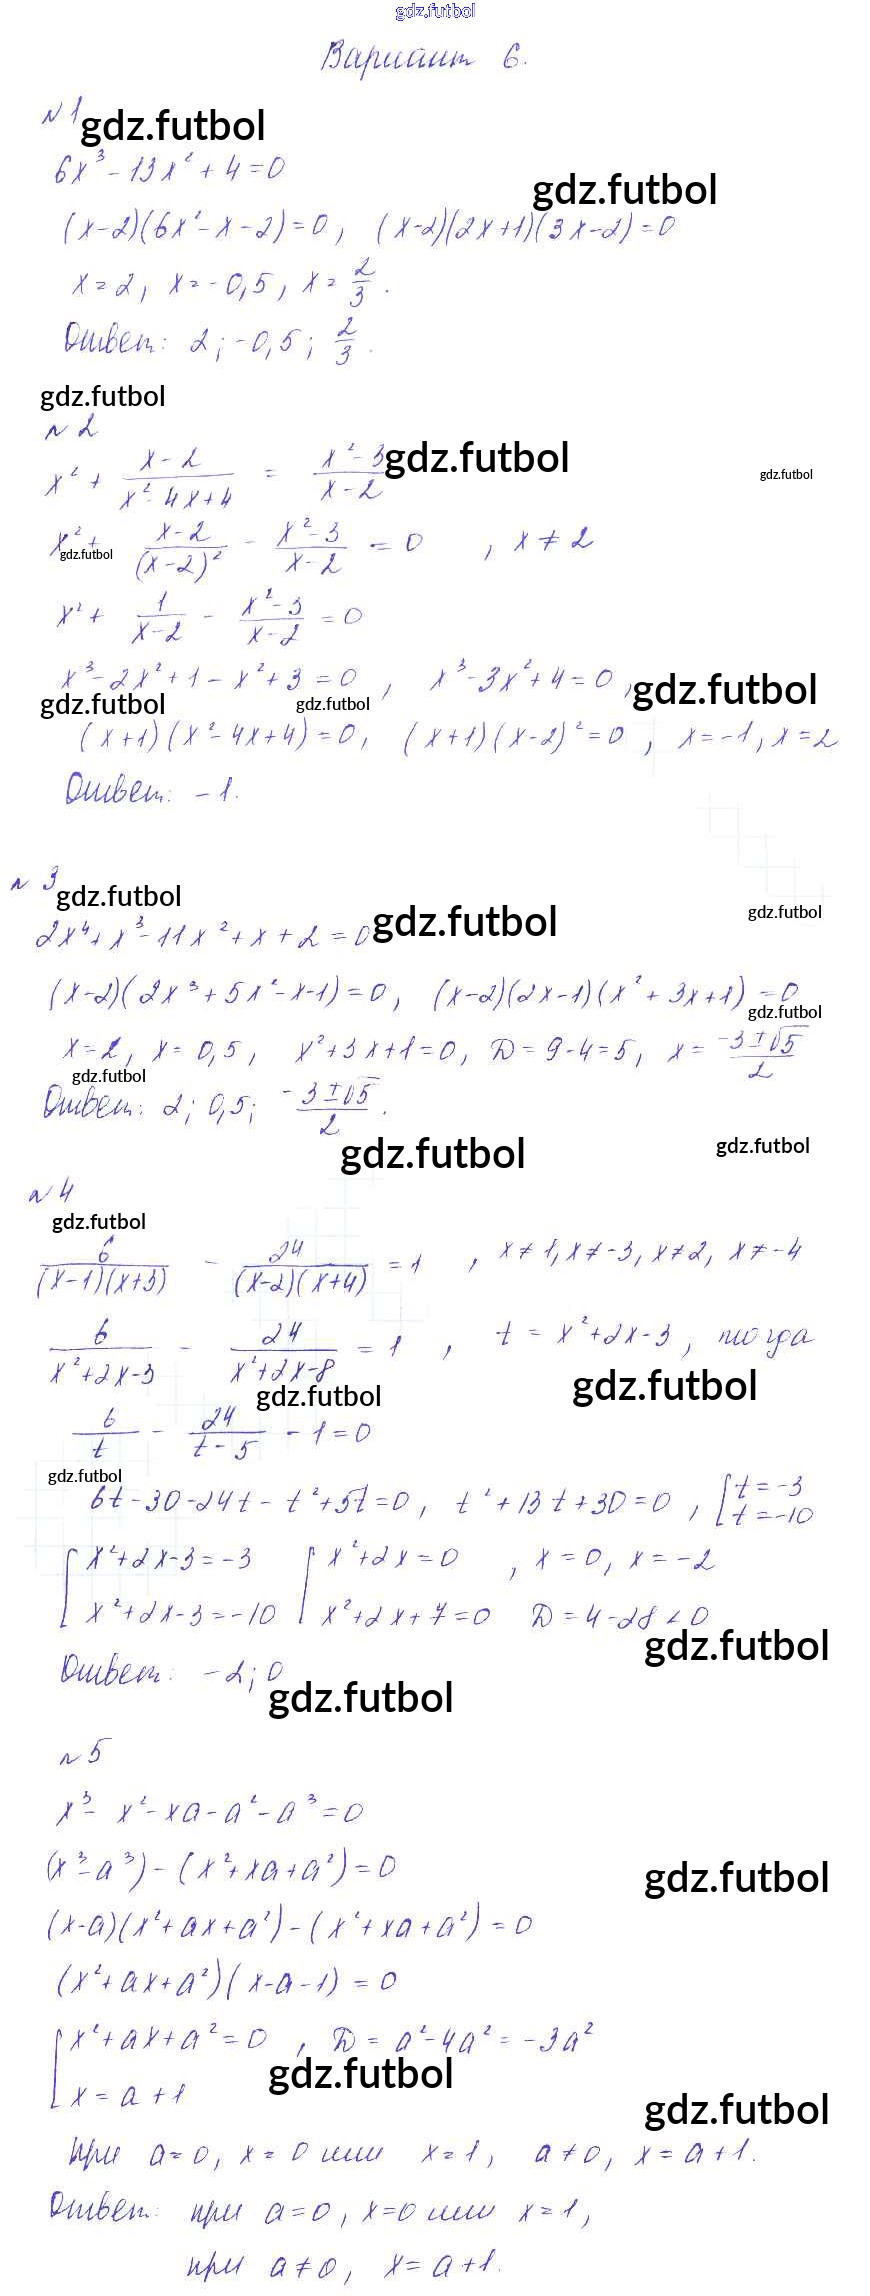 gdz.futbol
Вариант 6.
N 1 gdz.futbol
6x³ - 13x² + 4 = 0
gdz.futbol
(x-2)(6x² - x - 2) = 0, (x-2)(2x+1)(3x-2) = 0
x = 2, x = -0,5, x = 2/3.
Ответ: 2; -0,5; 2/3.
gdz.futbol
N 2
x² + (x-2)/(x² - 4x + 4) = (x² - 3)/(x-2) gdz.futbol
gdz.futbol
x² + (x-2)/(x-2)² - (x² - 3)/(x-2) = 0, x ≠ 2
gdz.futbol
x² + 1/(x-2) - (x² - 3)/(x-2) = 0
x³ - 2x² + 1 - x² + 3 = 0, x³ - 3x² + 4 = 0, gdz.futbol
gdz.futbol gdz.futbol
(x+1)(x² - 4x + 4) = 0, (x+1)(x-2)² = 0, x = -1, x = 2
Ответ: -1.
N 3 gdz.futbol
2x⁴ + x³ - 11x² + x + 2 = 0 gdz.futbol
gdz.futbol
(x-2)(2x³ + 5x² - x - 1) = 0, (x-2)(2x-1)(x² + 3x + 1) = 0
gdz.futbol
x = 2, x = 0,5, x² + 3x + 1 = 0, D = 9 - 4 = 5, x = (-3 ± √5)/2
gdz.futbol
Ответ: 2; 0,5; (-3 ± √5)/2.
gdz.futbol gdz.futbol
N 4
gdz.futbol
6/((x-1)(x+3)) - 24/((x-2)(x+4)) = 1, x ≠ 1, x ≠ -3, x ≠ 2, x ≠ -4
6/(x² + 2x - 3) - 24/(x² + 2x - 8) = 1, t = x² + 2x - 3, тогда
gdz.futbol gdz.futbol
6/t - 24/(t-5) - 1 = 0
gdz.futbol
6t - 30 - 24t - t² + 5t = 0, t² + 13t + 30 = 0, [t = -3
t = -10
[x² + 2x - 3 = -3 [x² + 2x = 0, x = 0, x = -2
x² + 2x - 3 = -10 x² + 2x + 7 = 0 D = 4 - 28 < 0
gdz.futbol
Ответ: -2; 0
gdz.futbol
N 5
x³ - x² - xa - a² - a³ = 0
(x³ - a³) - (x² + xa + a²) = 0
gdz.futbol
(x-a)(x² + ax + a²) - (x² + xa + a²) = 0
(x² + ax + a²)(x - a - 1) = 0
[x² + ax + a² = 0, D = a² - 4a² = -3a²
gdz.futbol
x = a + 1
gdz.futbol
при a = 0, x = 0 или x = 1, a ≠ 0, x = a + 1.
Ответ: при a = 0, x = 0 или x = 1,
при a ≠ 0, x = a + 1.